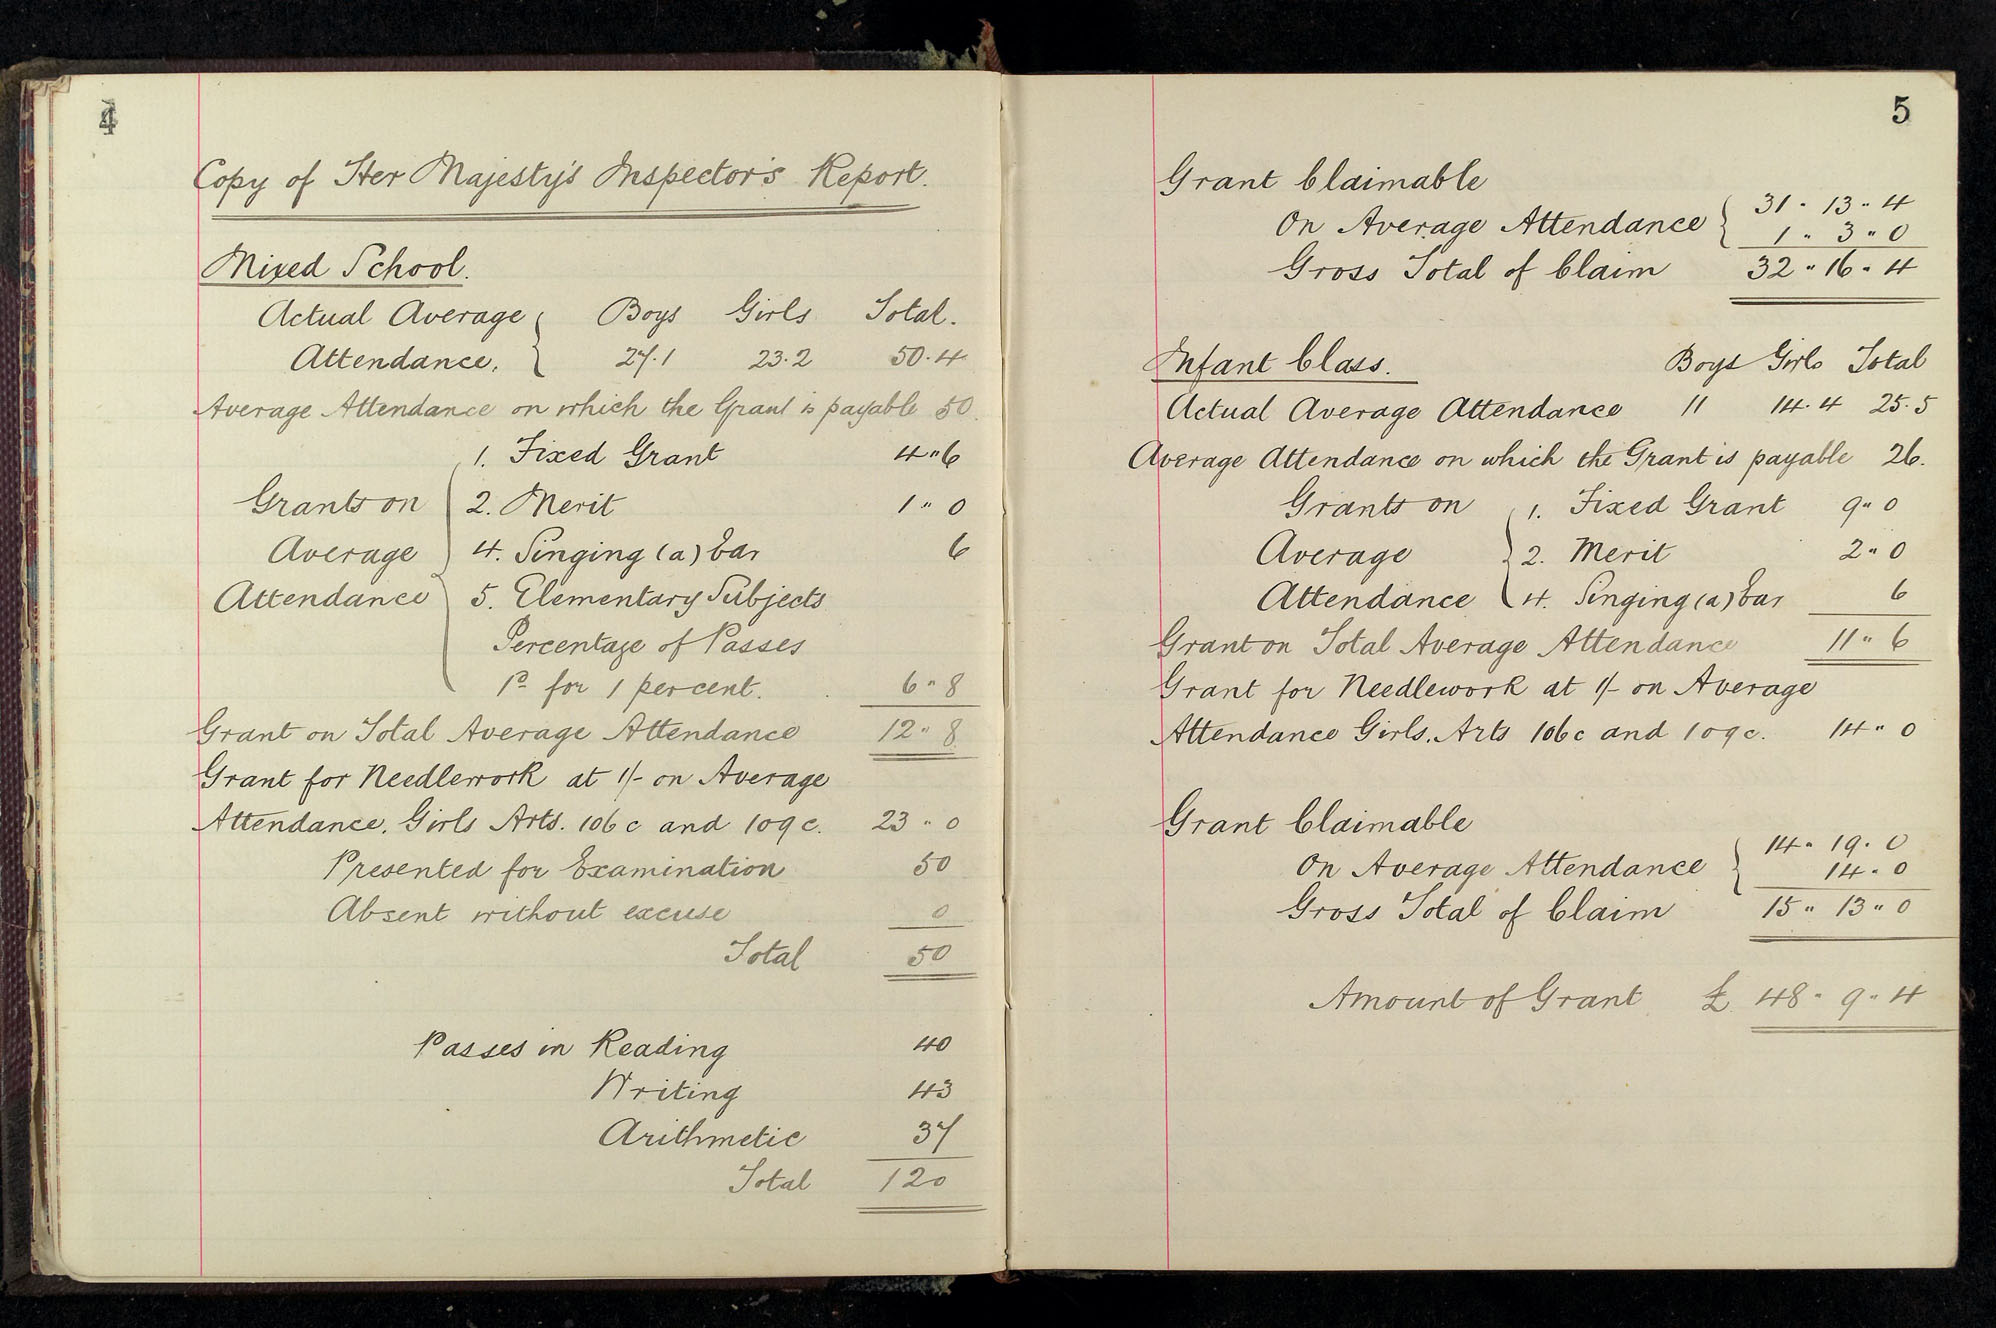 4
Copy of Her Majesty's Inspector's Report.
Mixed School.
Actual Average { Boys Girls Total.
Attendance. 27.1 23.2 50.4
Average Attendance on which the Grant is payable 50.
1. Fixed Grant 4"6
Grants on 2. Merit 1"0
Average 4. Singing (a) Ear 6
Attendance 5. Elementary Subjects
Percentage of Passes
1D for 1 per cent. 6"8
Grant on Total Average Attendance 12"8
Grant for Needlework at 1/- on Average
Attendance. Girls Arts. 106c and 109c. 23"0
Presented for Examination 50
Absent without excuse 0
Total 50
Passes in Reading 40
Writing 43
Arithmetic 37
Total 120
5
Grant Claimable
31"13"4
On Average Attendance {
1"3"0
Gross Total of Claim 32"16"4
Infant Class. Boys Girls Total
Actual Average Attendance 11 14.4 25.5
Average Attendance on which the Grant is payable 26.
Grants on 1. Fixed Grant 9"0
Average 2. Merit 2"0
Attendance 4. Singing (a) Ear 6
Grant on Total Average Attendance 11"6
Grant for Needlework at 1/- on Average
Attendance Girls. Arts 106c and 109c. 14"0
Grant Claimable
14"19"0
On Average Attendance {
14"0
Gross Total of Claim 15"13"0
Amount of Grant £ 48"9"4